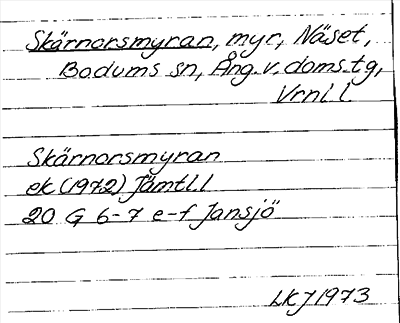 Skärnorsmyran, myr, Näset,
Bodums sn, Ång. v. doms. tg,
Vrnl l.
Skärnorsmyran
ek (1972) Jämtl l
20 G 6-7 e-f Jansjö
LKJ 1973